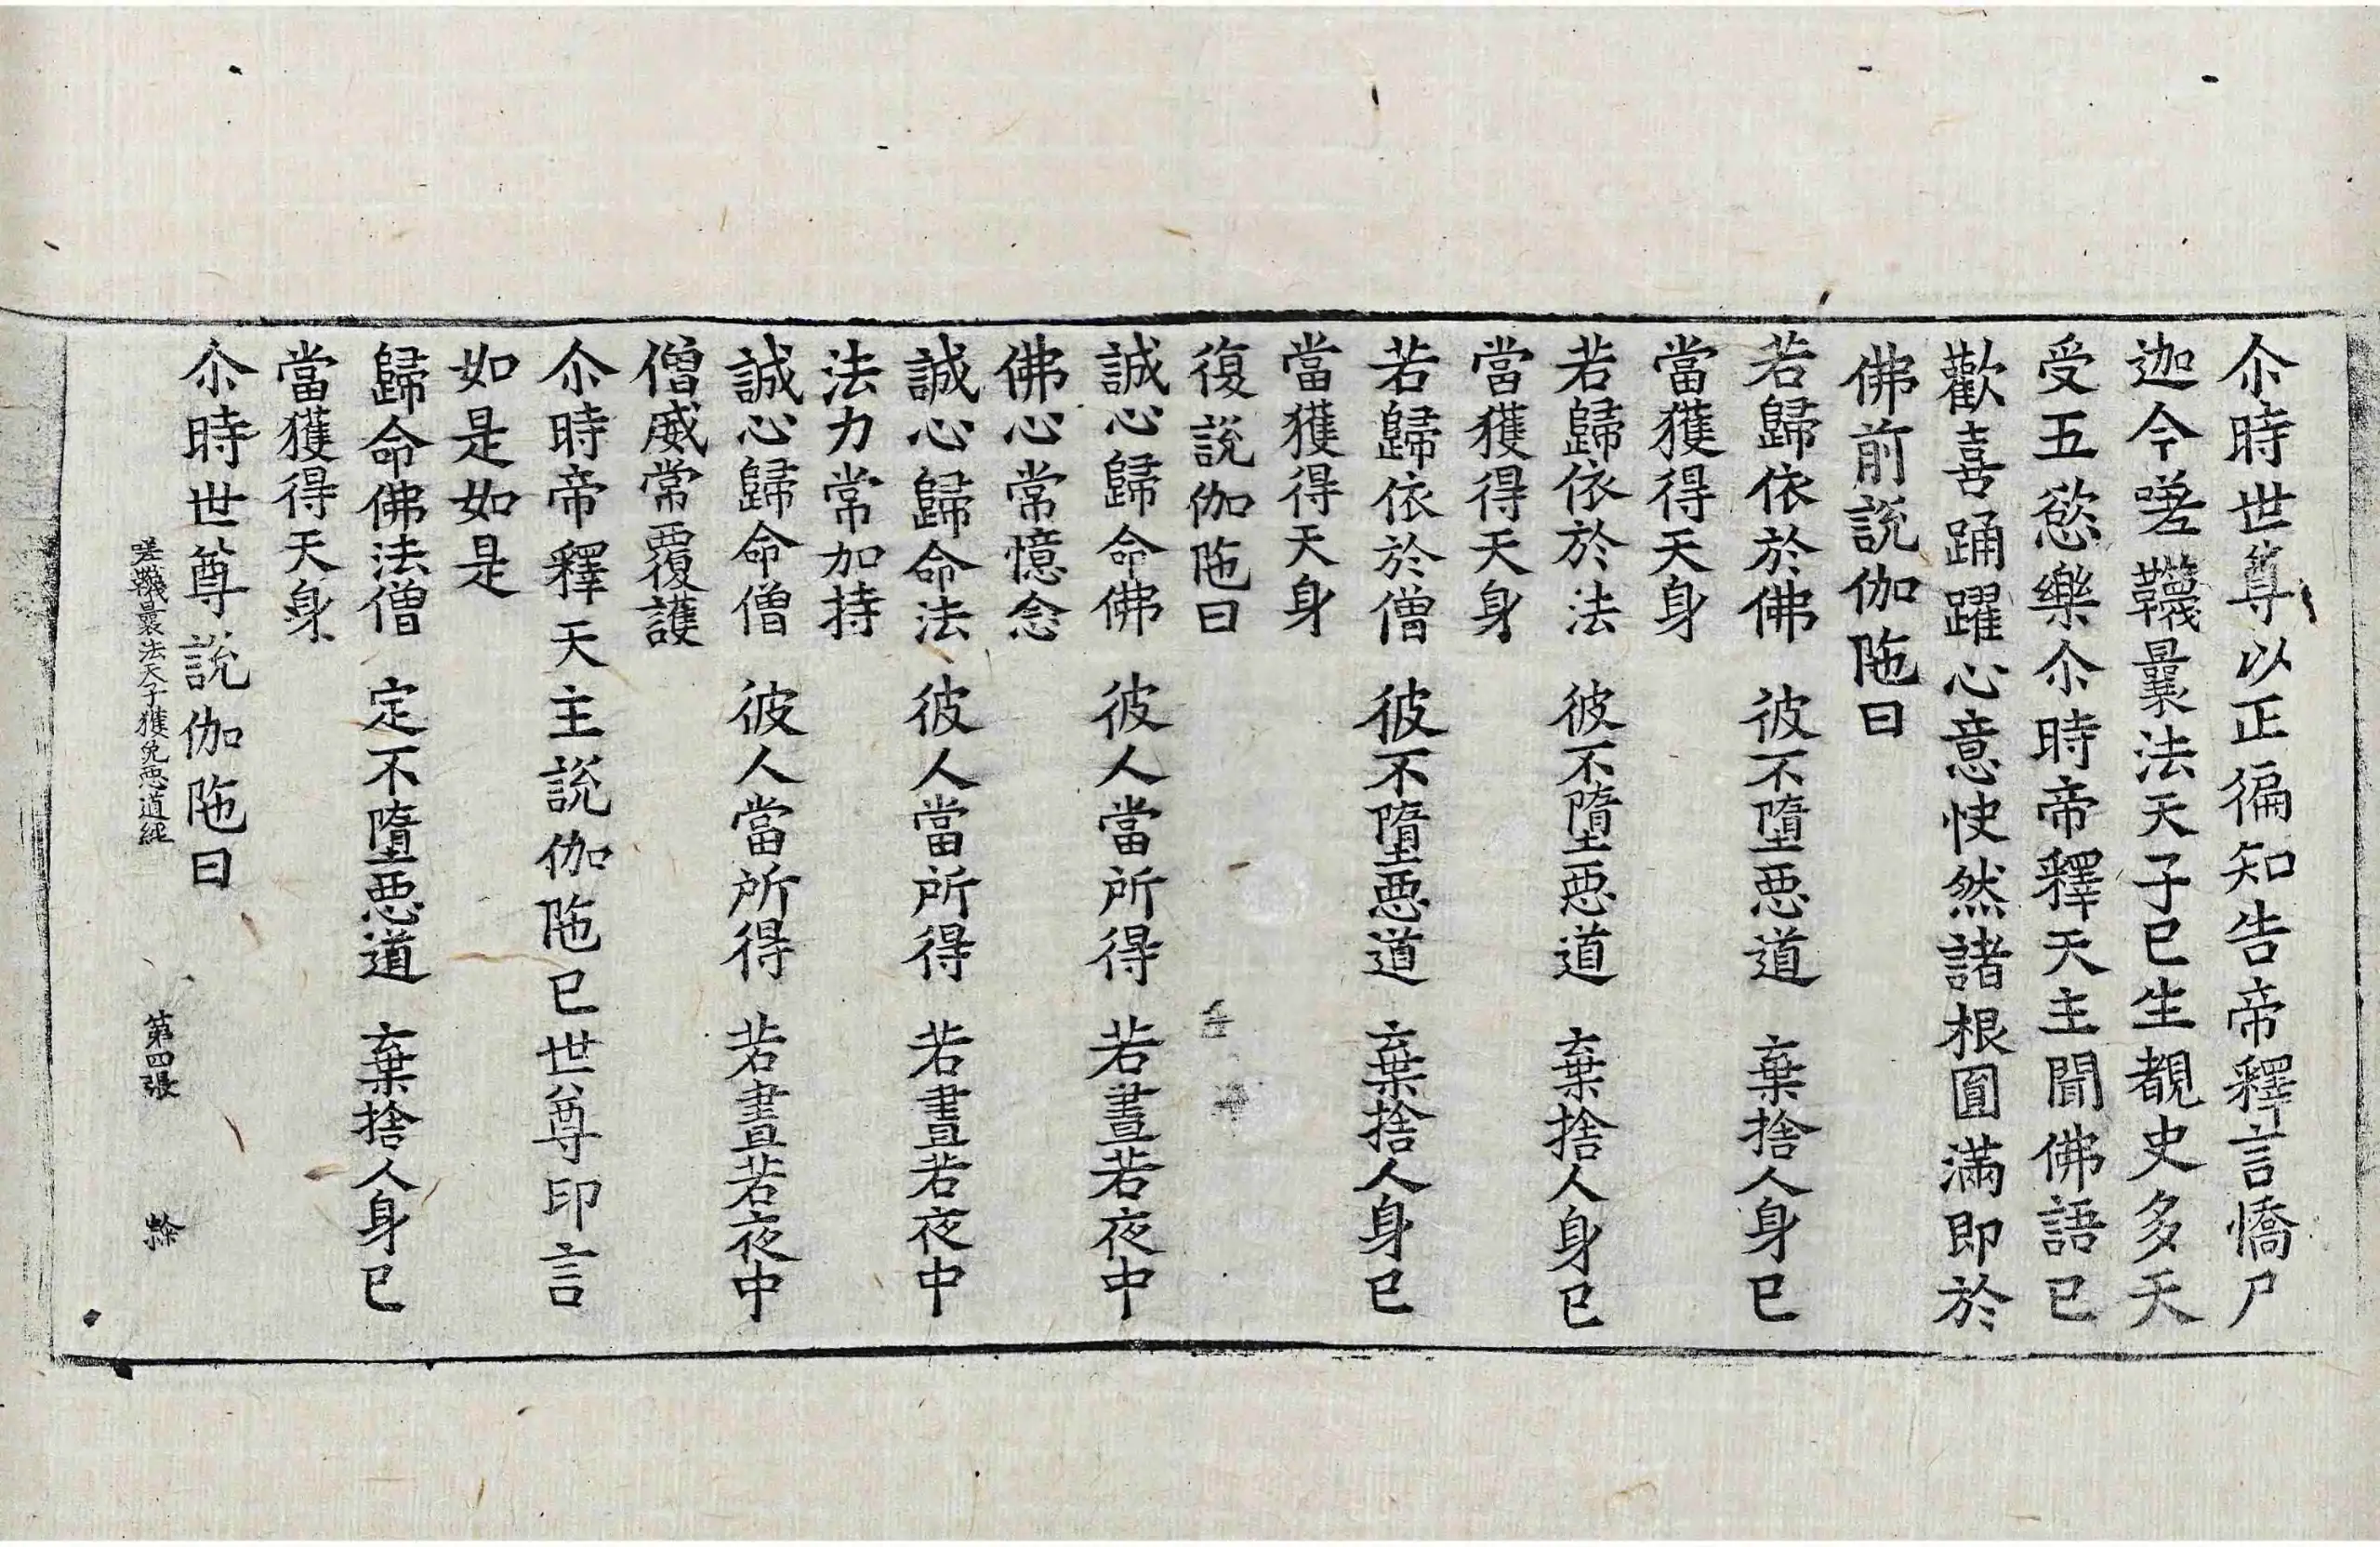 尒時世尊以正徧知告帝釋言憍尸
迦今嗟韈曩法天子已生覩史多天
受五慾樂尒時帝釋天主聞佛語已
歡喜踊躍心意快然諸根圓滿即於
佛前說伽陁曰
若歸依於佛 彼不墮惡道 棄捨人身已
當獲得天身
若歸依於法 彼不墮惡道 棄捨人身已
當獲得天身
若歸依於僧 彼不墮惡道 棄捨人身已
當獲得天身
復說伽陁曰
誠心歸命佛 彼人當所得 若晝若夜中
佛心常憶念
誠心歸命法 彼人當所得 若晝若夜中
法力常加持
誠心歸命僧 彼人當所得 若晝若夜中
僧威常覆護
尒時帝釋天主說伽陁已世尊印言
如是如是
歸命佛法僧 定不墮惡道 棄捨人身已
當獲得天身
尒時世尊說伽陁曰
嗟韈曩法天子獲免惡道經 第四張